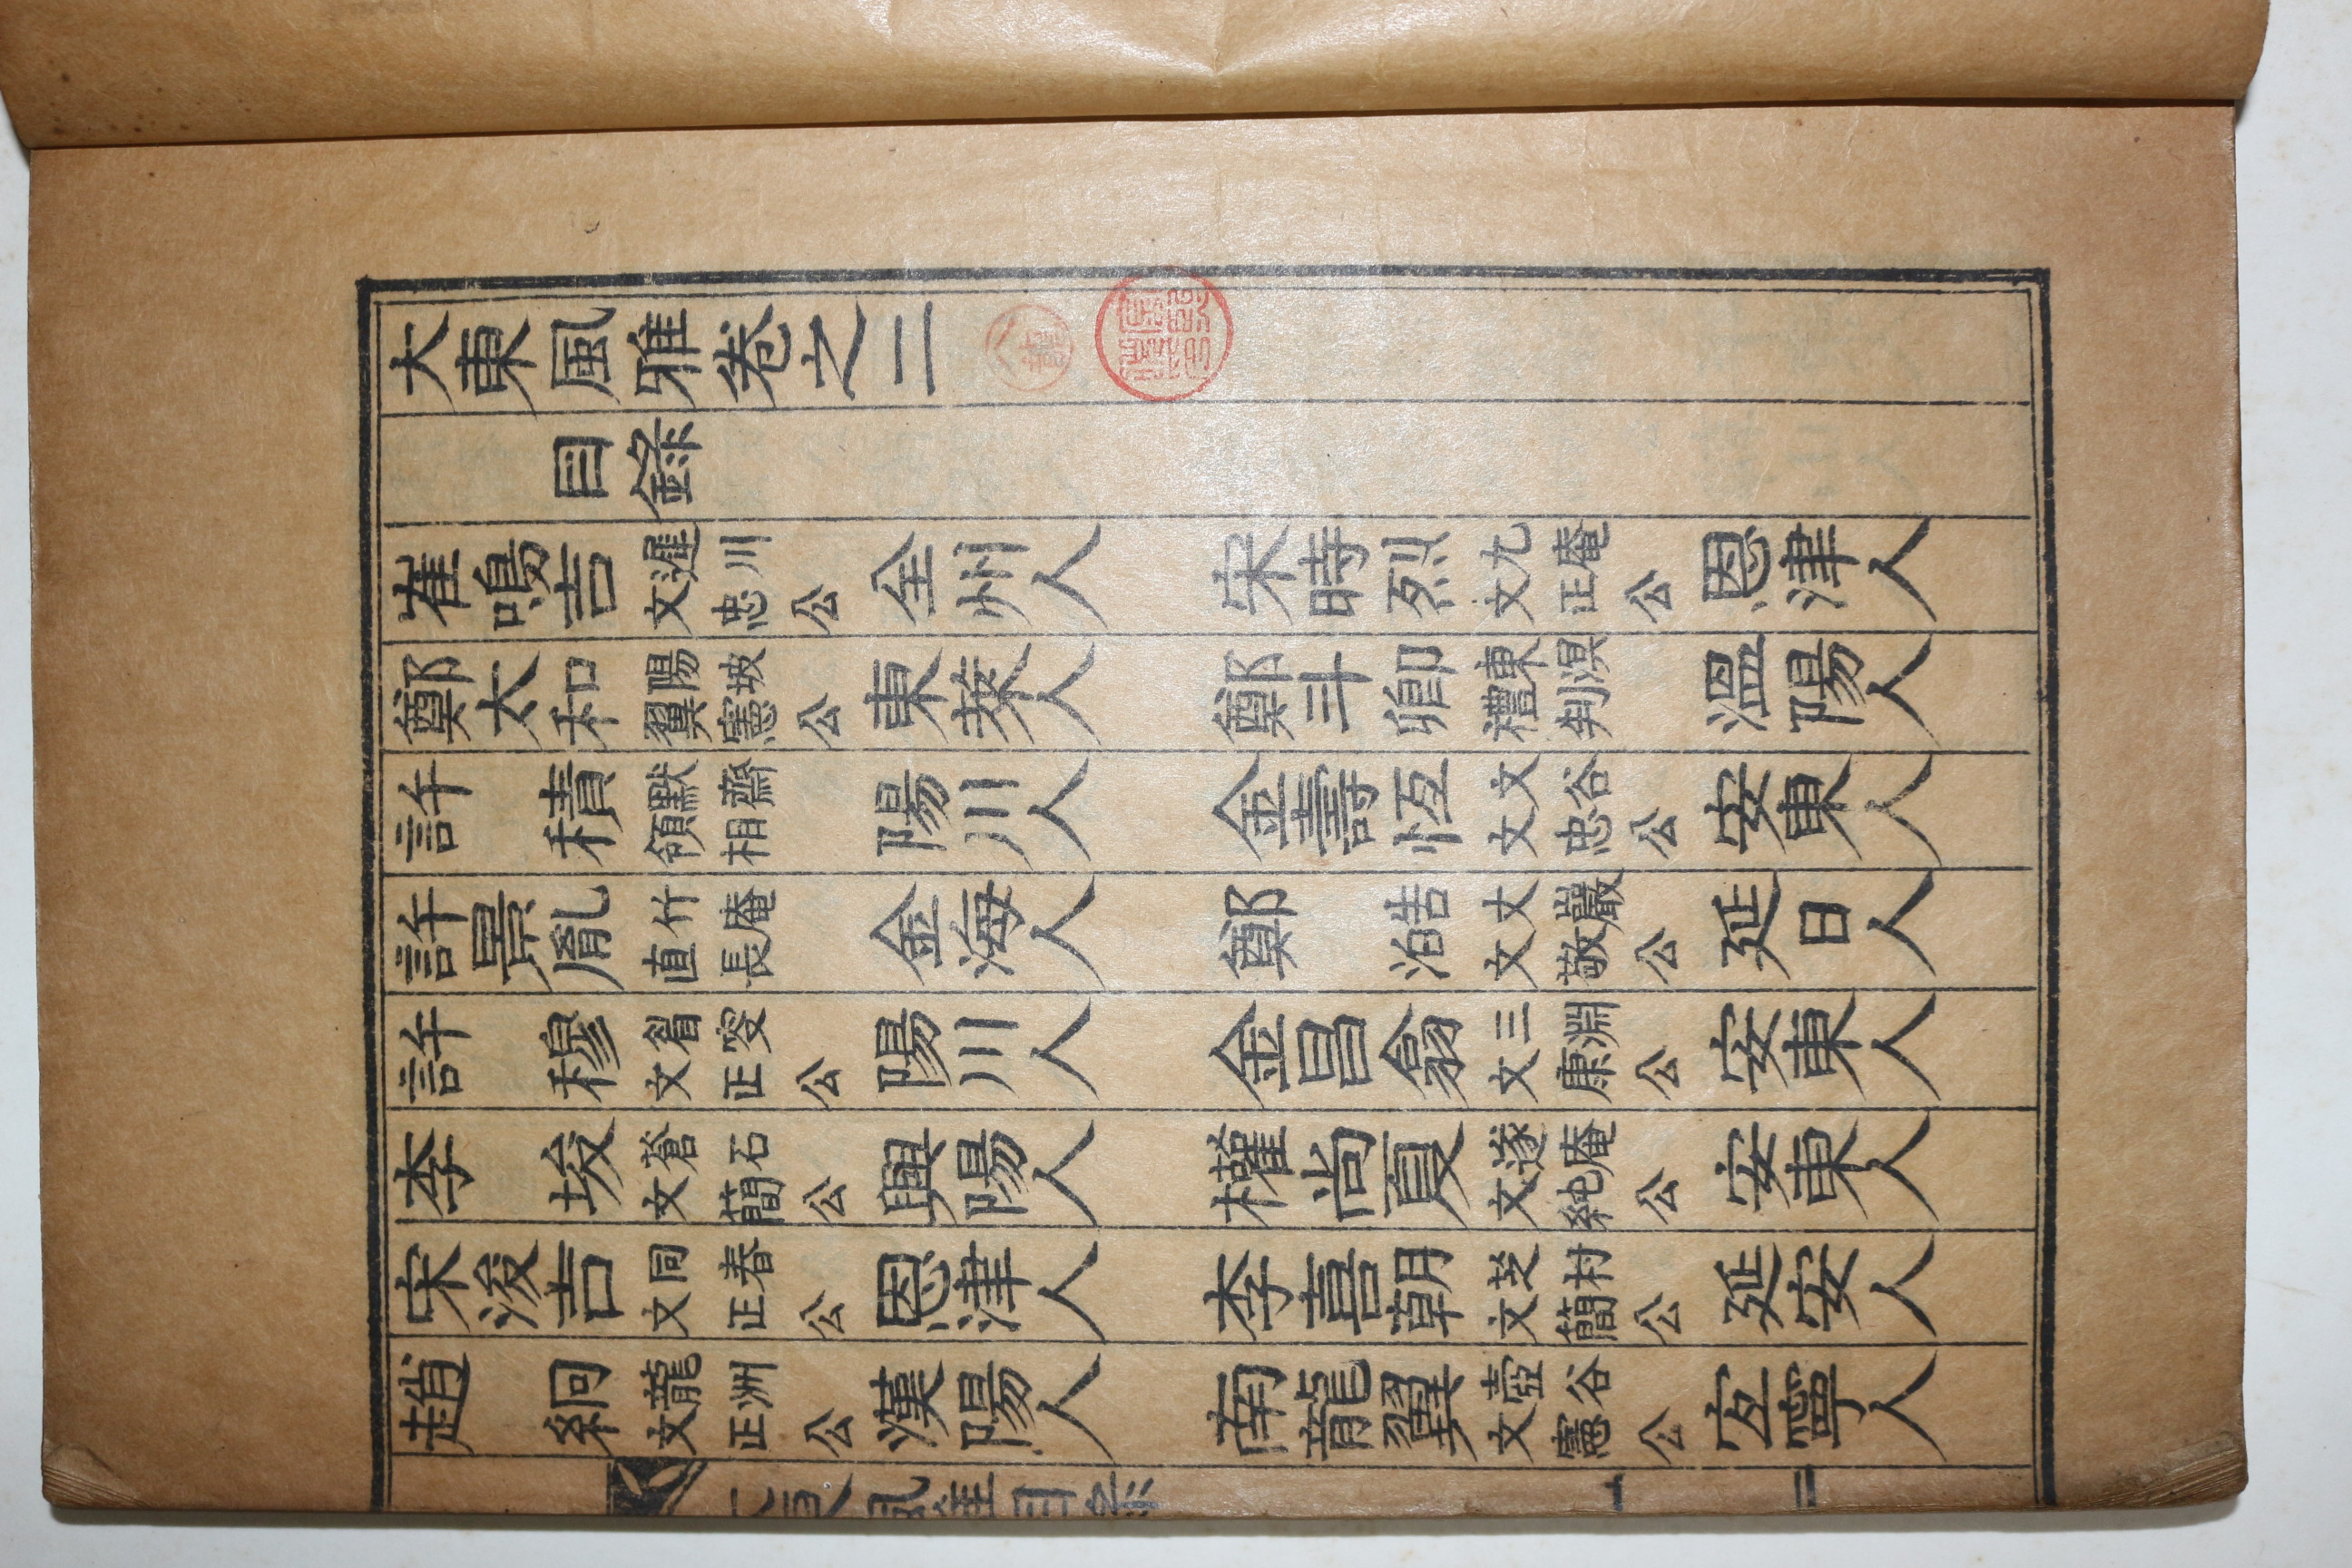 大東風雅卷之二
目錄
崔鳴吉 遲川 文忠公 全州人 宋時烈 九庵 文正公 恩津人
鄭太和 陽坡 翼憲公 東萊人 鄭斗卿 東溟 禮判 溫陽人
許積 默齋 領相 陽川人 金壽恆 文谷 文忠公 安東人
許景胤 竹庵 直長 金海人 鄭澔 丈巖 文敬公 延日人
許穆 眉叟 文正公 陽川人 金昌翕 三淵 文康公 安東人
李埈 蒼石 文簡公 興陽人 權尙夏 遂庵 文純公 安東人
宋浚吉 同春 文正公 恩津人 李喜朝 芝村 文簡公 延安人
趙絅 龍洲 文正公 漢陽人 南龍翼 壺谷 文憲公 宜寧人
大東風雅目錄